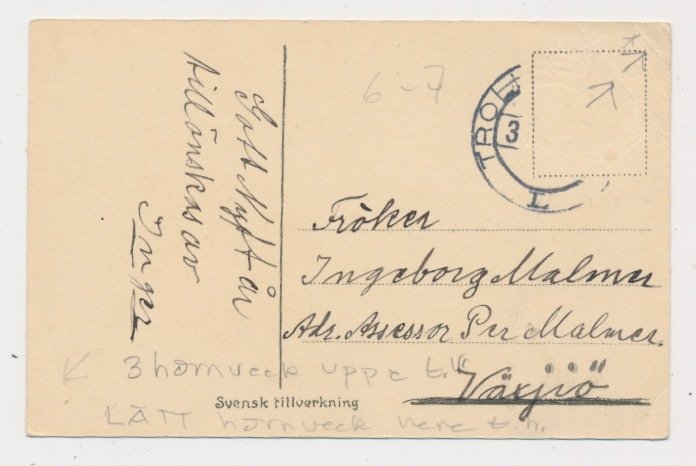 Gott Nytt år
tillönskas av
Inger
6-7
TRO
3
L
Fröken
Ingeborg Malmer
Adr. Assessor Per Malmer.
Växjö
K 3 hörnveck uppe t.v
LÄTT hörnveck nere t.h.
Svensk tillverkning